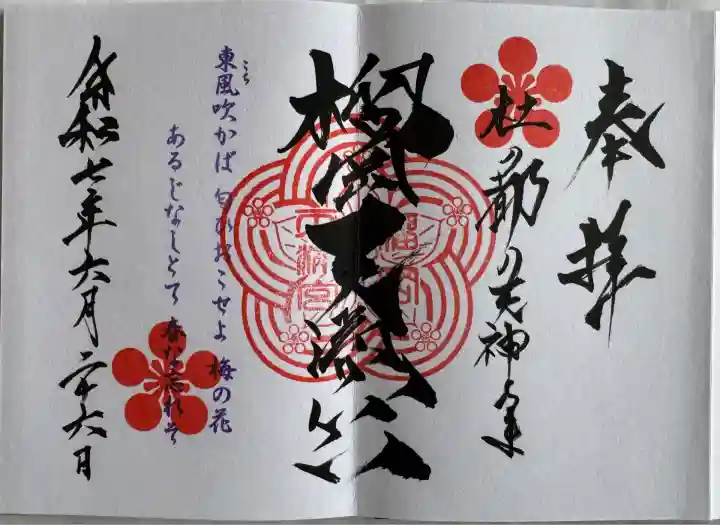 奉拝
杜の都の天神さま
榴岡天満宮
こち
東風吹かば 匂ひおこせよ 梅の花
あるじなしとて 春な忘れそ
令和七年六月二十六日